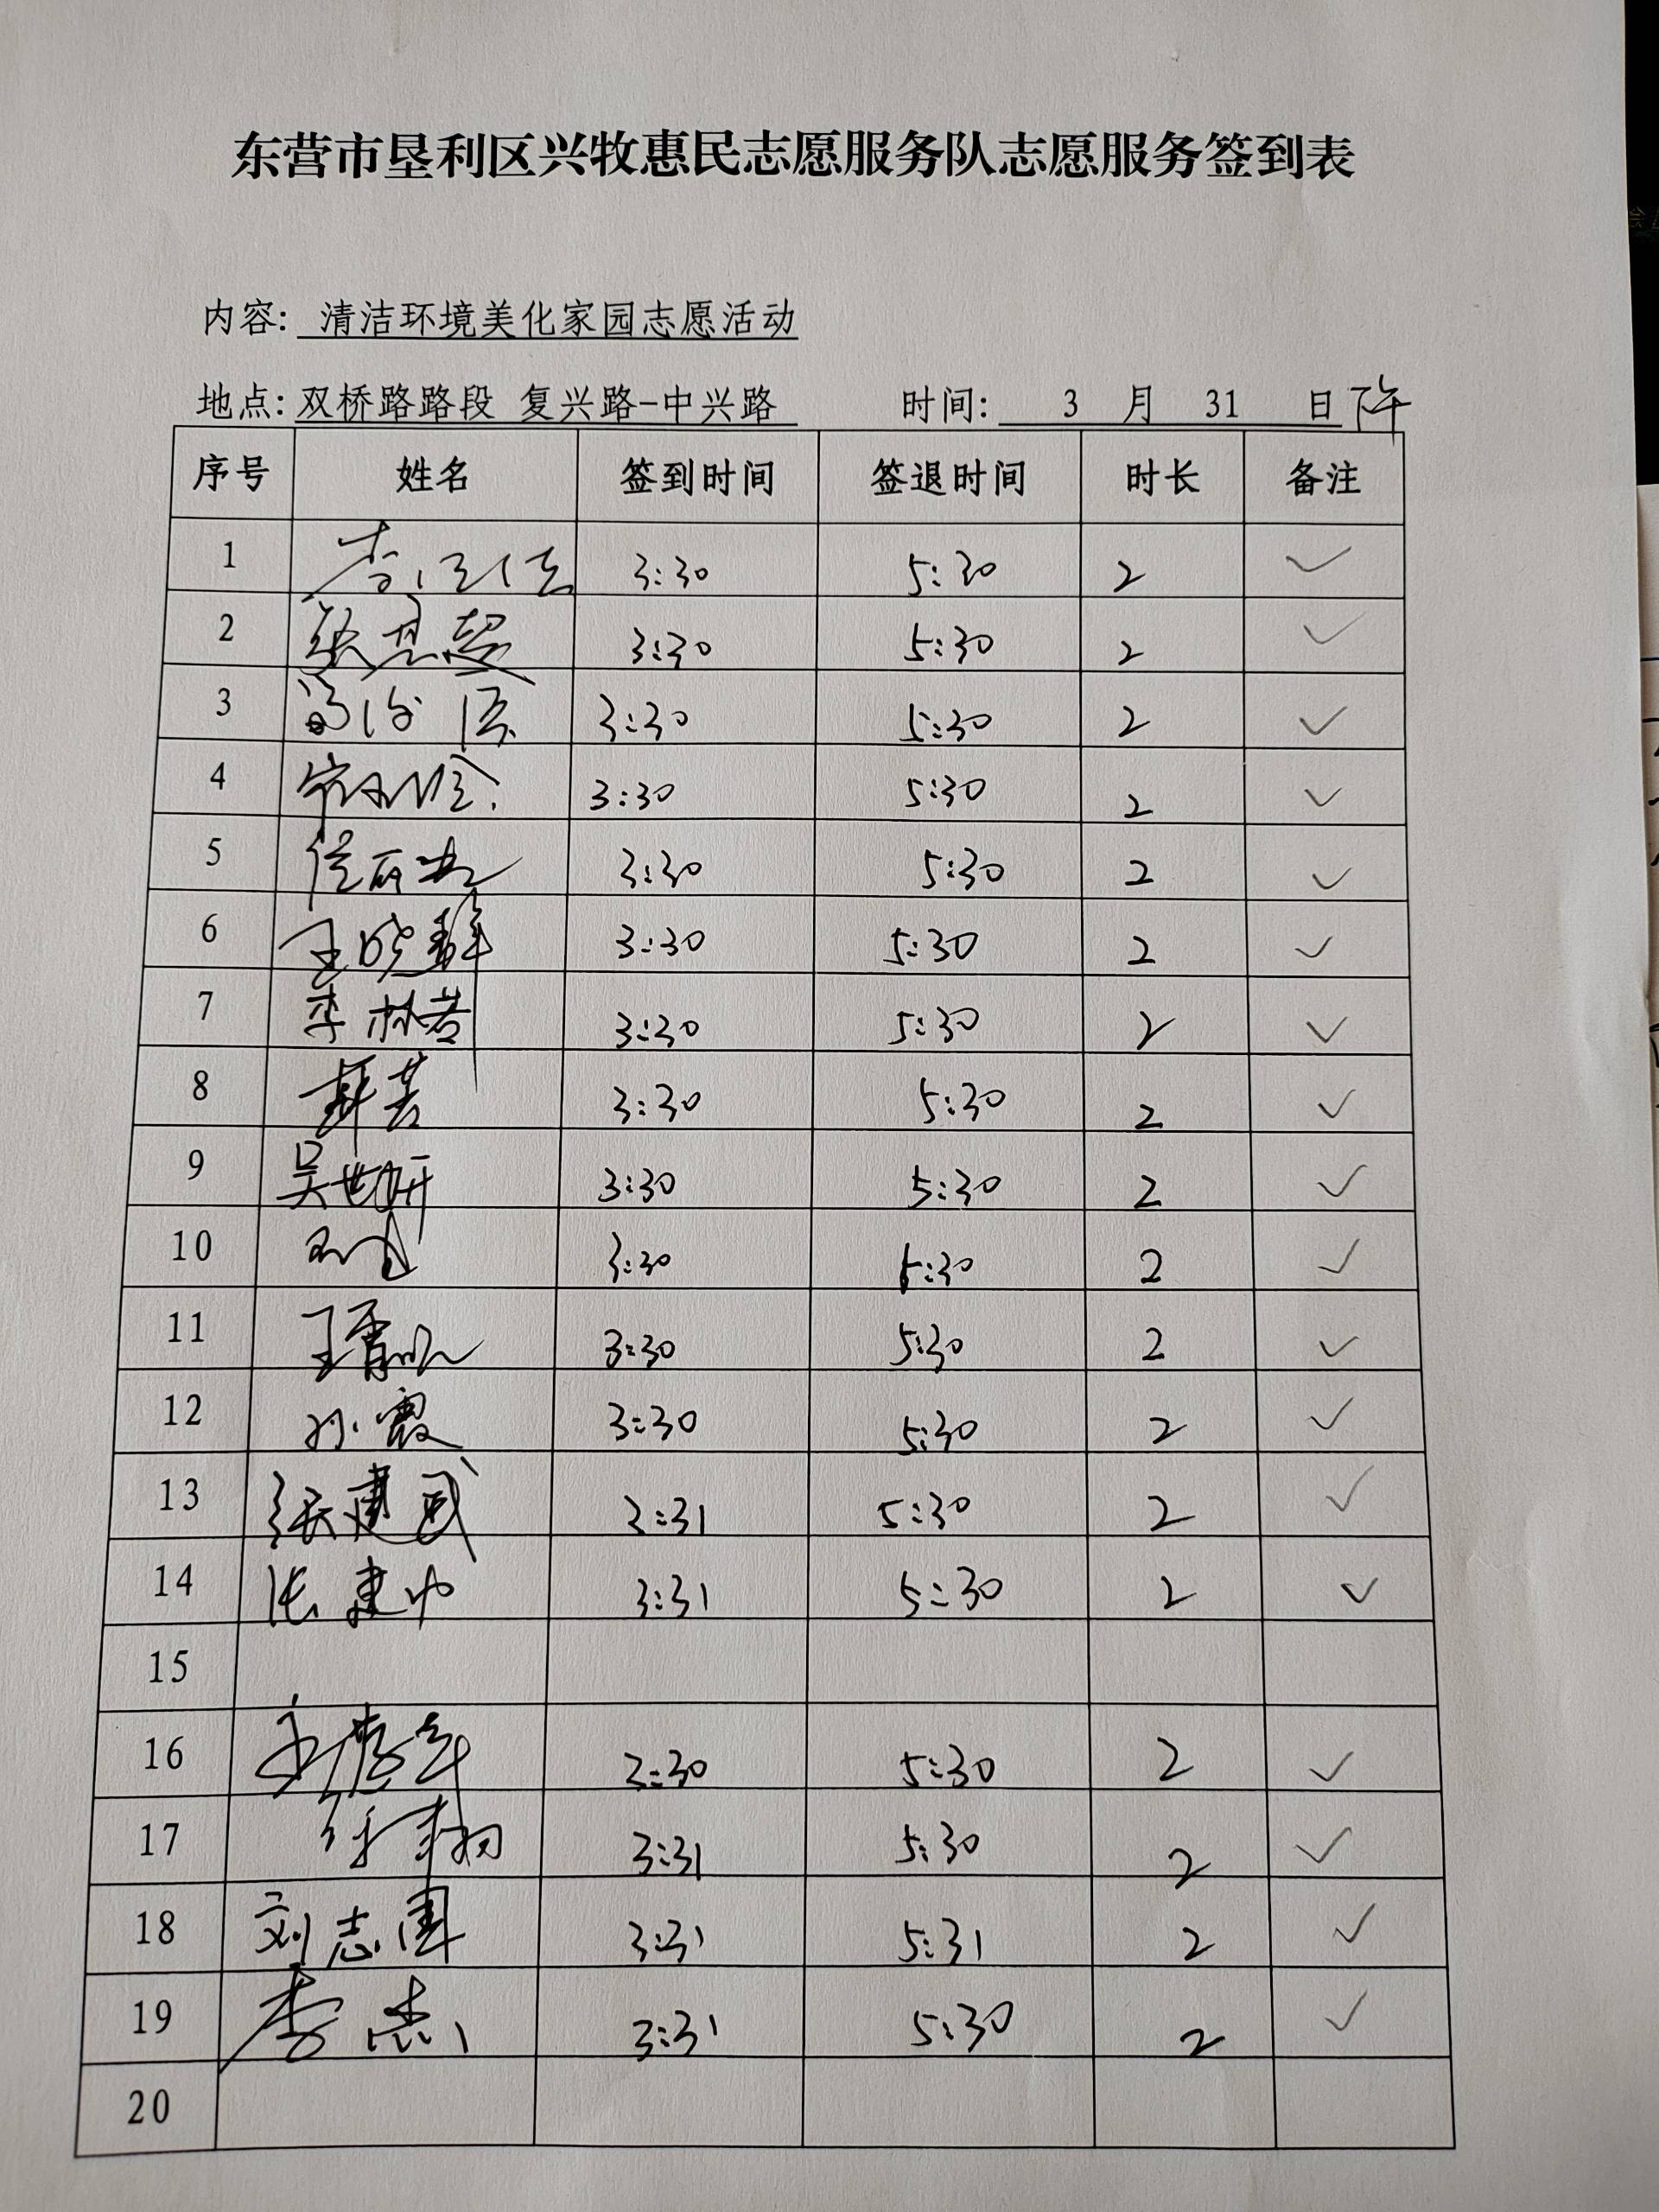 东营市垦利区兴牧惠民志愿服务队志愿服务签到表
内容: 清洁环境美化家园志愿活动
地点: 双桥路路段 复兴路-中兴路 时间: 3 月 31 日 下午
序号 姓名 签到时间 签退时间 时长 备注
1 3:30 5:30 2 ✓
2 3:30 5:30 2 ✓
3 3:30 5:30 2 ✓
4 3:30 5:30 2 ✓
5 3:30 5:30 2 ✓
6 王晓静 3:30 5:30 2 ✓
7 李林若 3:30 5:30 2 ✓
8 3:30 5:30 2 ✓
9 吴世妍 3:30 5:30 2 ✓
10 3:30 5:30 2 ✓
11 3:30 5:30 2 ✓
12 孙霞 3:30 5:30 2 ✓
13 张建武 3:31 5:30 2 ✓
14 3:31 5:30 2 ✓
15
16 3:30 5:30 2 ✓
17 3:31 5:30 2 ✓
18 刘志国 3:31 5:31 2 ✓
19 李杰 3:31 5:30 2 ✓
20